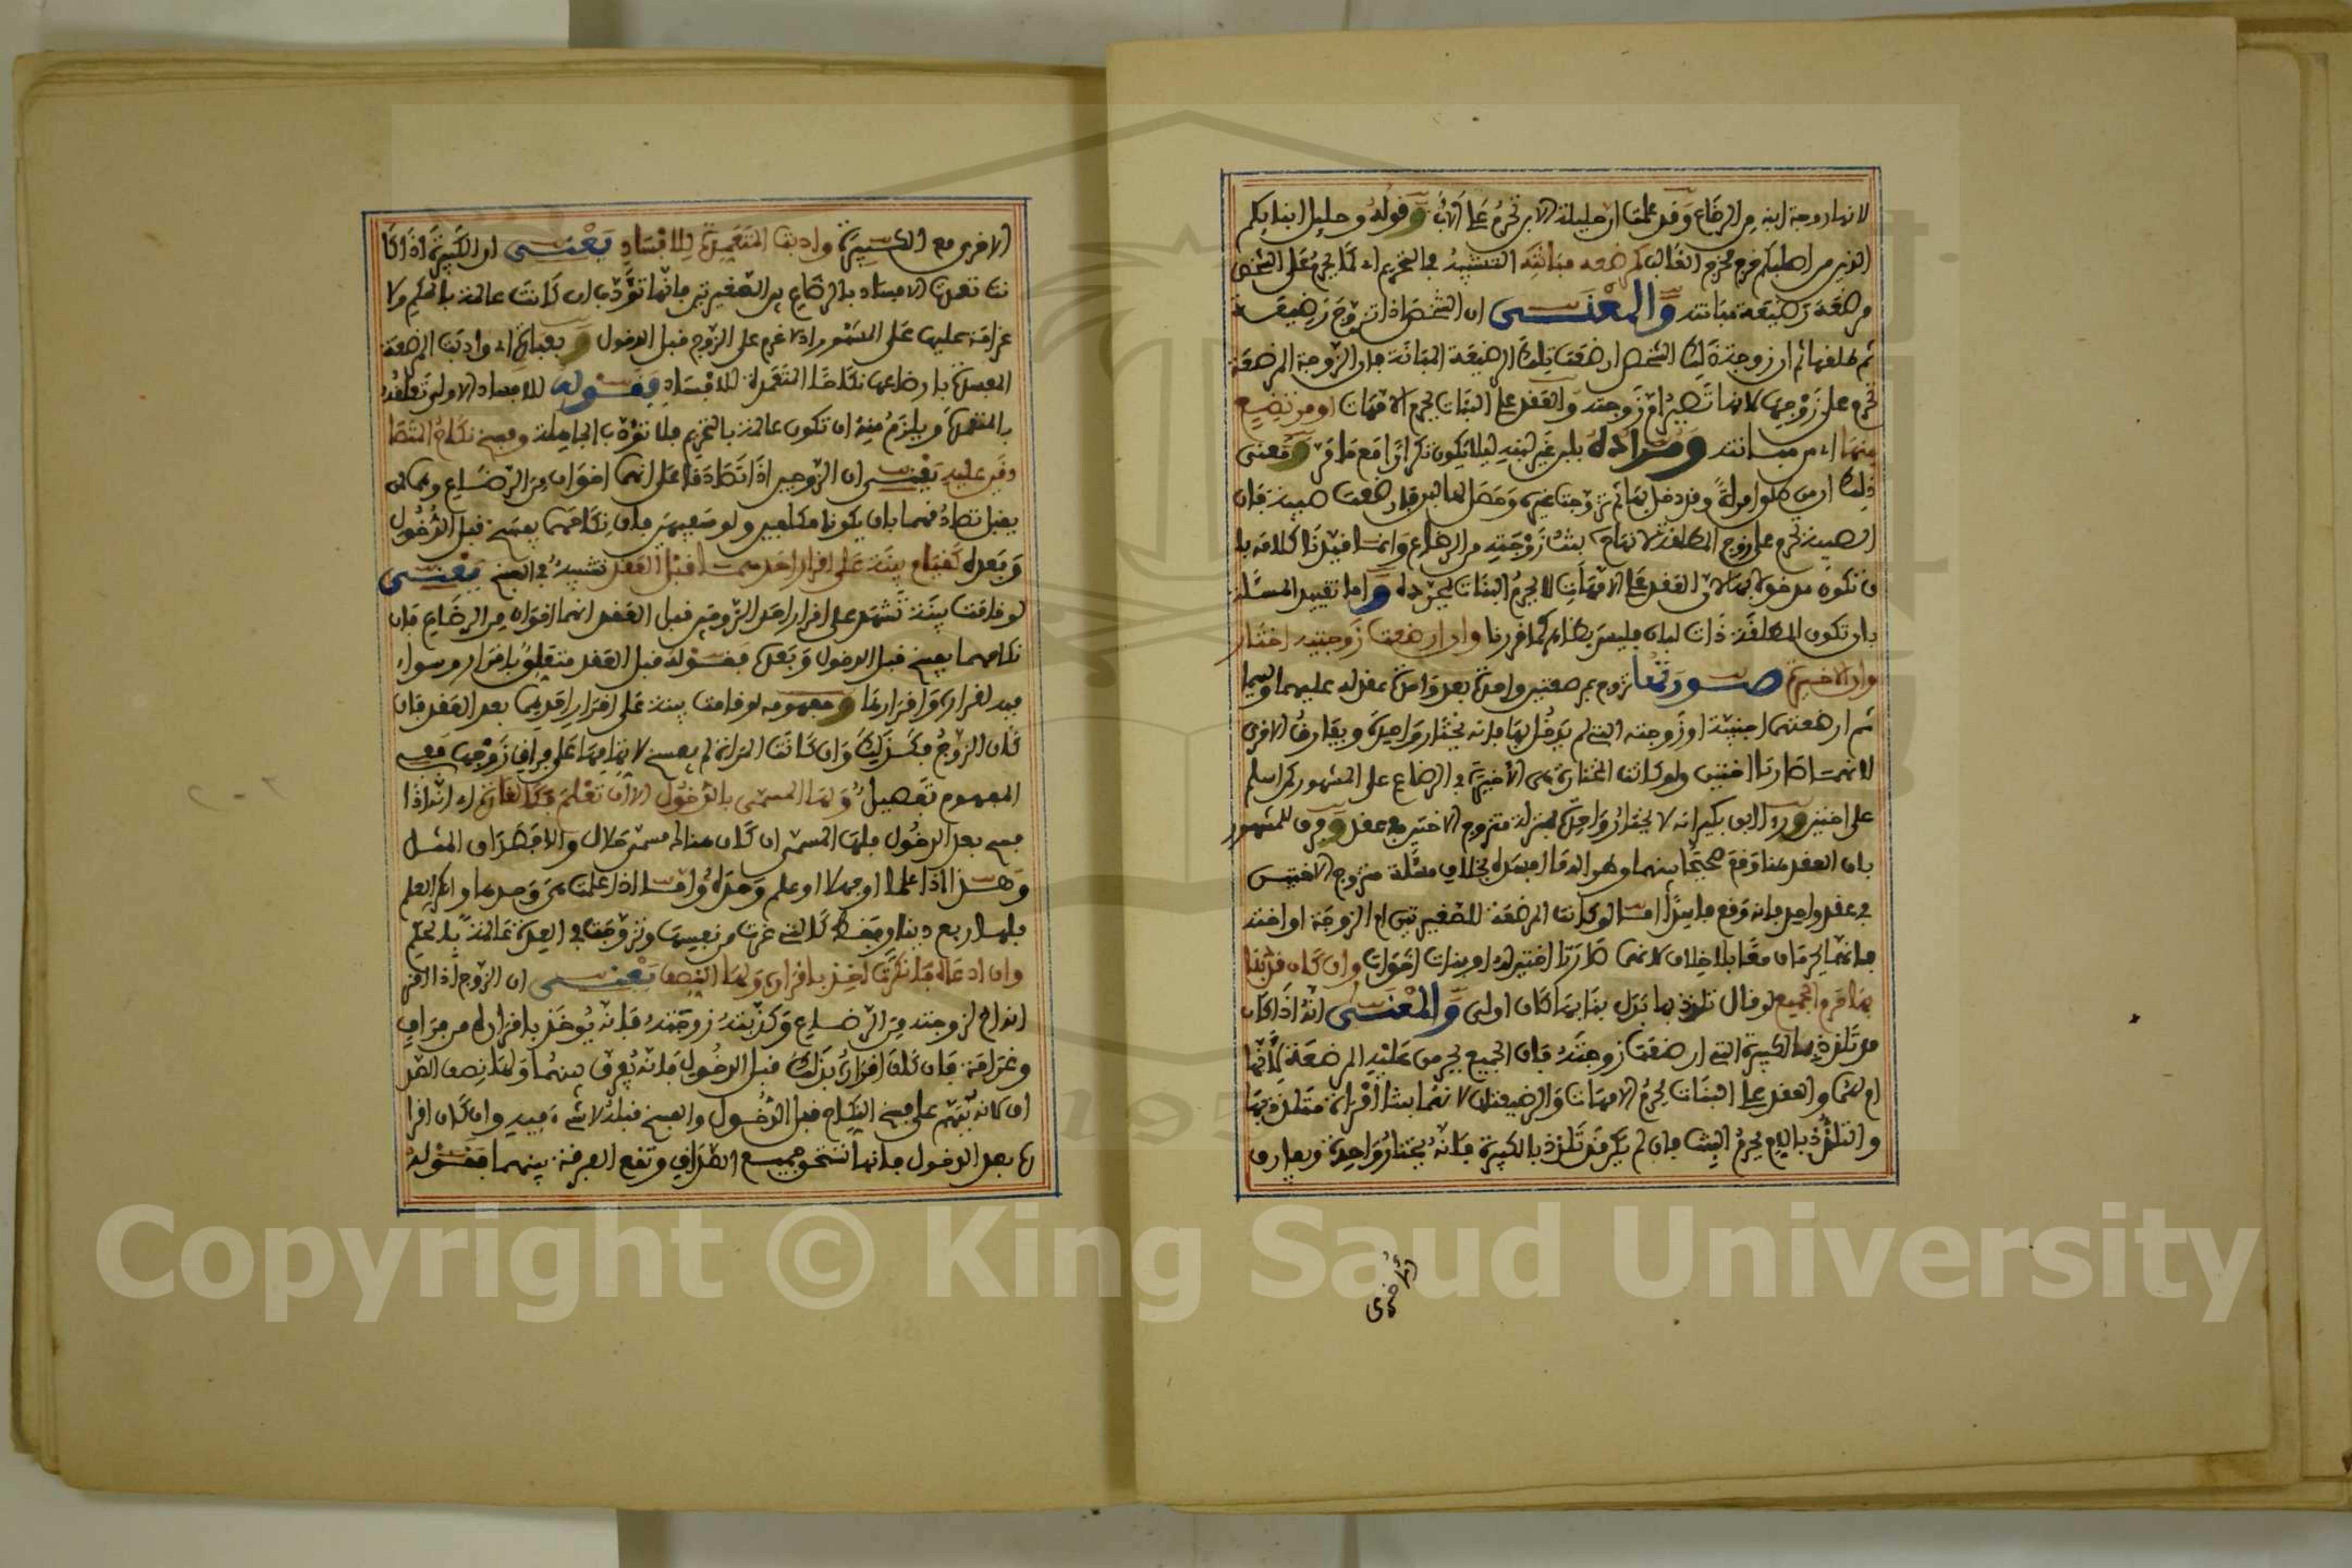 لانها زوجة ابنه من الرضاع وقد علمت ان حليلة الابن تحرم على الأب وقوله وحلائل ابنائكم
الذين من اصلبكم خرج مخرج الغالب كمرضعة مبانته التشبيه في التحريم اي كما يحرم على الشخص
مرضعة رضيعة مبانته والمعنى ان الشخص اذا تزوج رضيعة
ثم طلقها ثم ان زوجة ذلك الشخص ارضعت تلك الرضيعة المبانة فان الزوجة المرضعة
تحرم على زوجها لانها تصير ام زوجته والعقد على البنات يحرم الامهات او مرتضع
منها اي من مبانته ومراده بلبن غيره ليلا يكون تكرارا مع ما مر ومعنى
ذلك ان من طلق امراة وقد دخل بها ثم تزوجت غيره وحصل لها لبن فارضعت صبية فان
الصبية تحرم على زوج المطلقة لانها بنت زوجته من الرضاع وانما قيدنا كلامه با
ن تكون مدخولا بها لان العقد على الامهات لا يحرم البنات بمجرده واما تقييد المسئلة
بان تكون المطلقة ذات لبان فليس بظاهر كما قررنا وان ارضعت زوجتيه اختار
وان الاخيرة صورتها تزوج برضعتين واحدة بعد واحدة عقد له عليهما وليهما
ثم ارضعتهما اجنبية او زوجته التي لم يدخل بها فانه يختار واحدة ويفارق الاخرى
لانهما صارتا اختين ولو كانت المختارة هي الأخيرة في الرضاع على المشهور كمن اسلم
على اختين ورد ابن بكير انه لا يختار واحدة بمنزلة متزوج الاختين في عقد وفرق للمشهور
بان العقد هنا وقع صحيحا بينهما وطرا له ما افسده بخلاف مسئلة متزوج الاختين
في عقد واحد فانه وقع فاسدا اما لو كانت المرضعة للصغيرتين ام الزوجة او اخته
فانهما يحرمان معا بلا خلاف لانهما صارتا اختين له او بنات اخوات وان كان قد بنا
بها حرم الجميع لو قال تلذذ بها بدل بنا بها كان اولى والمعنى انه اذا كان
قد تلذذ بالكبيرة التي ارضعت زوجته فان الجميع يحرمن عليه المرضعة لأنها
ام لهما والعقد على البنات يحرم الامهات والرضيعتان لانهما بنتا امراة متلذذ بها
والتلذذ بالام يحرم البنت فان لم يكن قد تلذذ بالكبيرة فانه يختار واحدة ويفارق
الاخرى
الاخرى مع الكبيرة وادبت المتعمدة للافساد يعنى ان الكبيرة اذا كا
نت تعمدت الافساد بالرضاع بين الصغيرتين فانها تؤدب ان كانت عالمة بالحكم ولا
غرامة عليها على المشهور اذ لا غرم على الزوج قبل الدخول وبعبارة اي وادبت المرضعة
المفسدة بارضاعها نكاحا المتعمدة للافساد فقوله للافساد الاولى تعلقه
بالمتعمدة ويلزم منه ان تكون عالمة بالتحريم فلا تؤدب الجاهلة وفسخ نكاح المتصا
دقين عليه يعنى ان الزوجين اذا تصادقا على انهما اخوان من الرضاع وهما ممن
يقبل تصادقهما بان يكونا مكلفين ولو سفيهين فان نكاحهما يفسخ قبل الدخول
وبعده كقيام بينة على اقرار احدهما قبل العقد تشبيه في الفسخ يعنى
لو قامت بينة تشهد على اقرار احد الزوجين قبل العقد انهما اخوان من الرضاع فان
نكاحهما يفسخ قبل الدخول وبعده فقوله قبل العقد متعلق باقرار وسواء
فيه اقراره واقرارها ومفهومه لو قامت بينة على اقرار احدهما بعد العقد فان
كان الزوج فكذلك وان كانت المراة لم يفسخ لاتهامها على فراق زوجها ففي
المفهوم تفصيل ولها المسمى بالدخول الا ان تعلم فكالغارة اي انه اذا
فسخ بعد الدخول فلها المسمى ان كان هناك مسمى حلال والا فصداق المثل
وهذا اذا علما او جهلا او علم وحده واما اذا علمت هي وحدها وانكر العلم
فلها ربع دينار فقط كالتي غرت من نفسها وتزوجت في العدة عالمة بالحكم
وان ادعاه فانكرت اخذ باقراره ولها النصف يعنى ان الزوج اذا اقر
انه اخ لزوجته من الرضاع وكذبته زوجته فانه يوخذ باقراره من فراق
وغرامة فان كان اقراره بذلك قبل الدخول فانه يفرق بينهما ولها نصف الصد
اق لانه يتهم على فسخ النكاح قبل الدخول والفسخ قبله لا شيء فيه وان كان اقرا
ره بعد الدخول فانها تستحق جميع الصداق وتقع الفرقة بينهما فقوله
Copyright © King Saud University